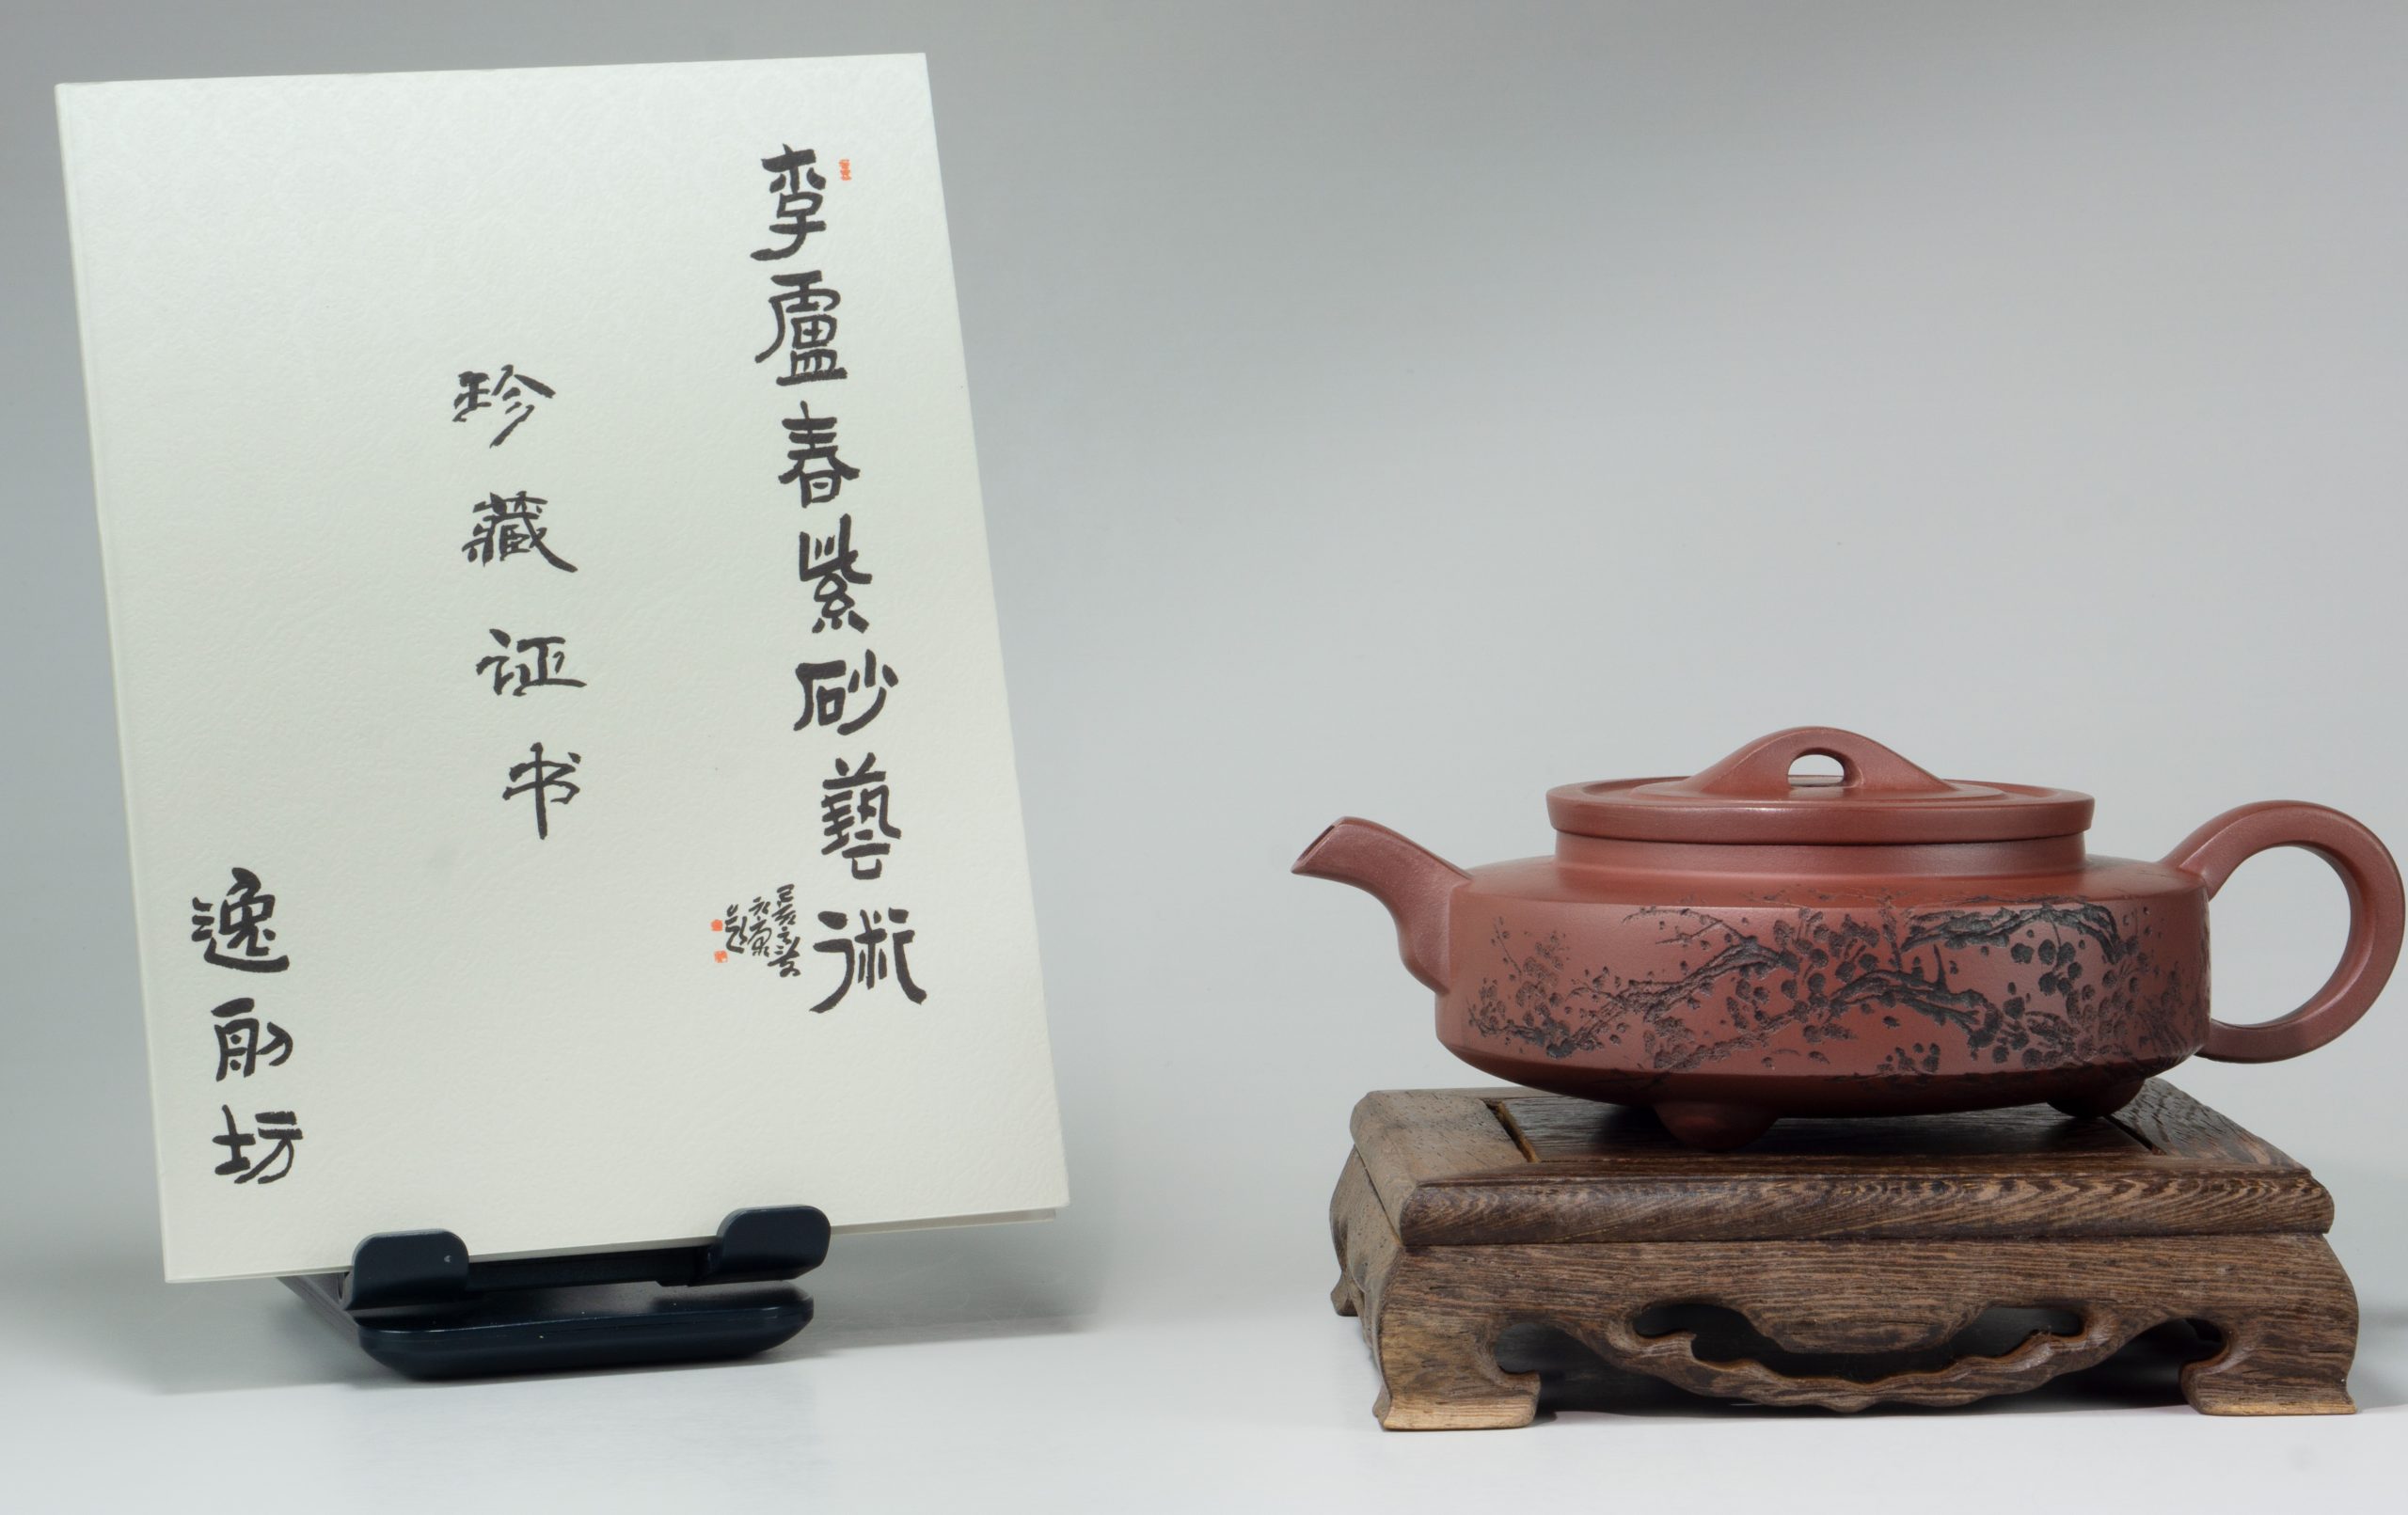 李盧春紫砂藝術
珍藏证书
逸 坊